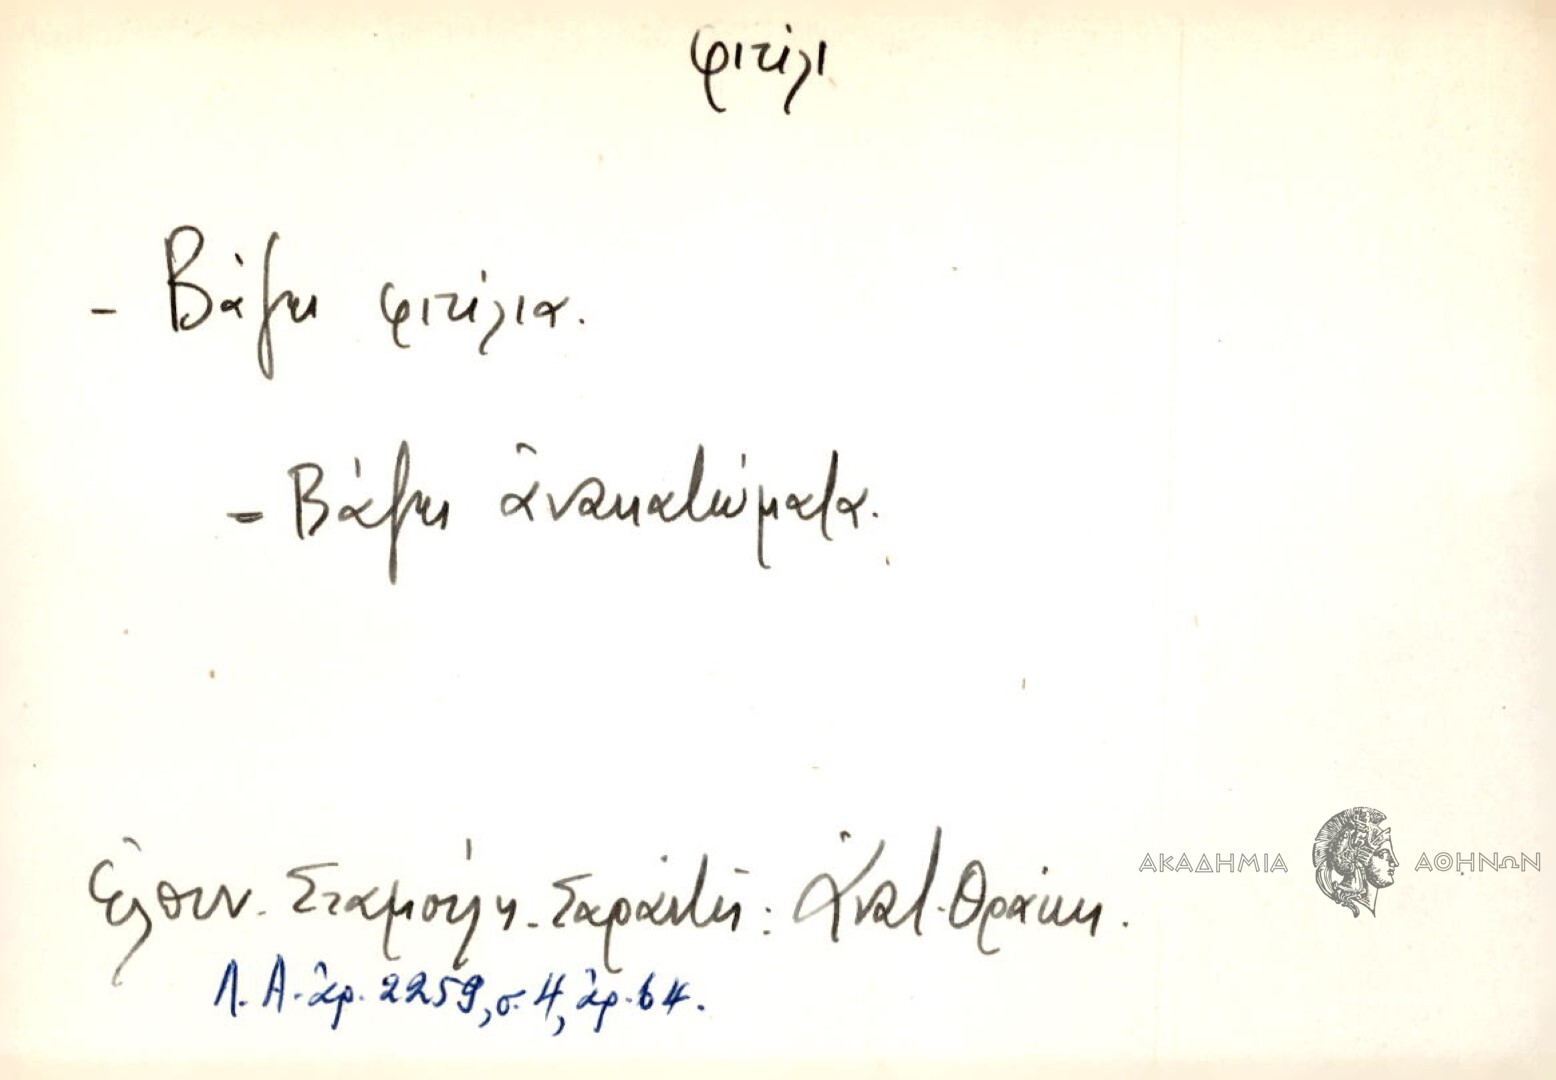 φιτίλι
- Βάζει φιτίλια.
- Βάζει ἀνακατώματα.
Ἐλπιν. Σταμούλη - Σαραντῆ: Ἀνατ. Θράκη.
Λ. Α. ἀρ. 2259, σ. 4, ἀρ. 64.
ΑΚΑΔΗΜΙΑ ΑΘΗΝΩΝ